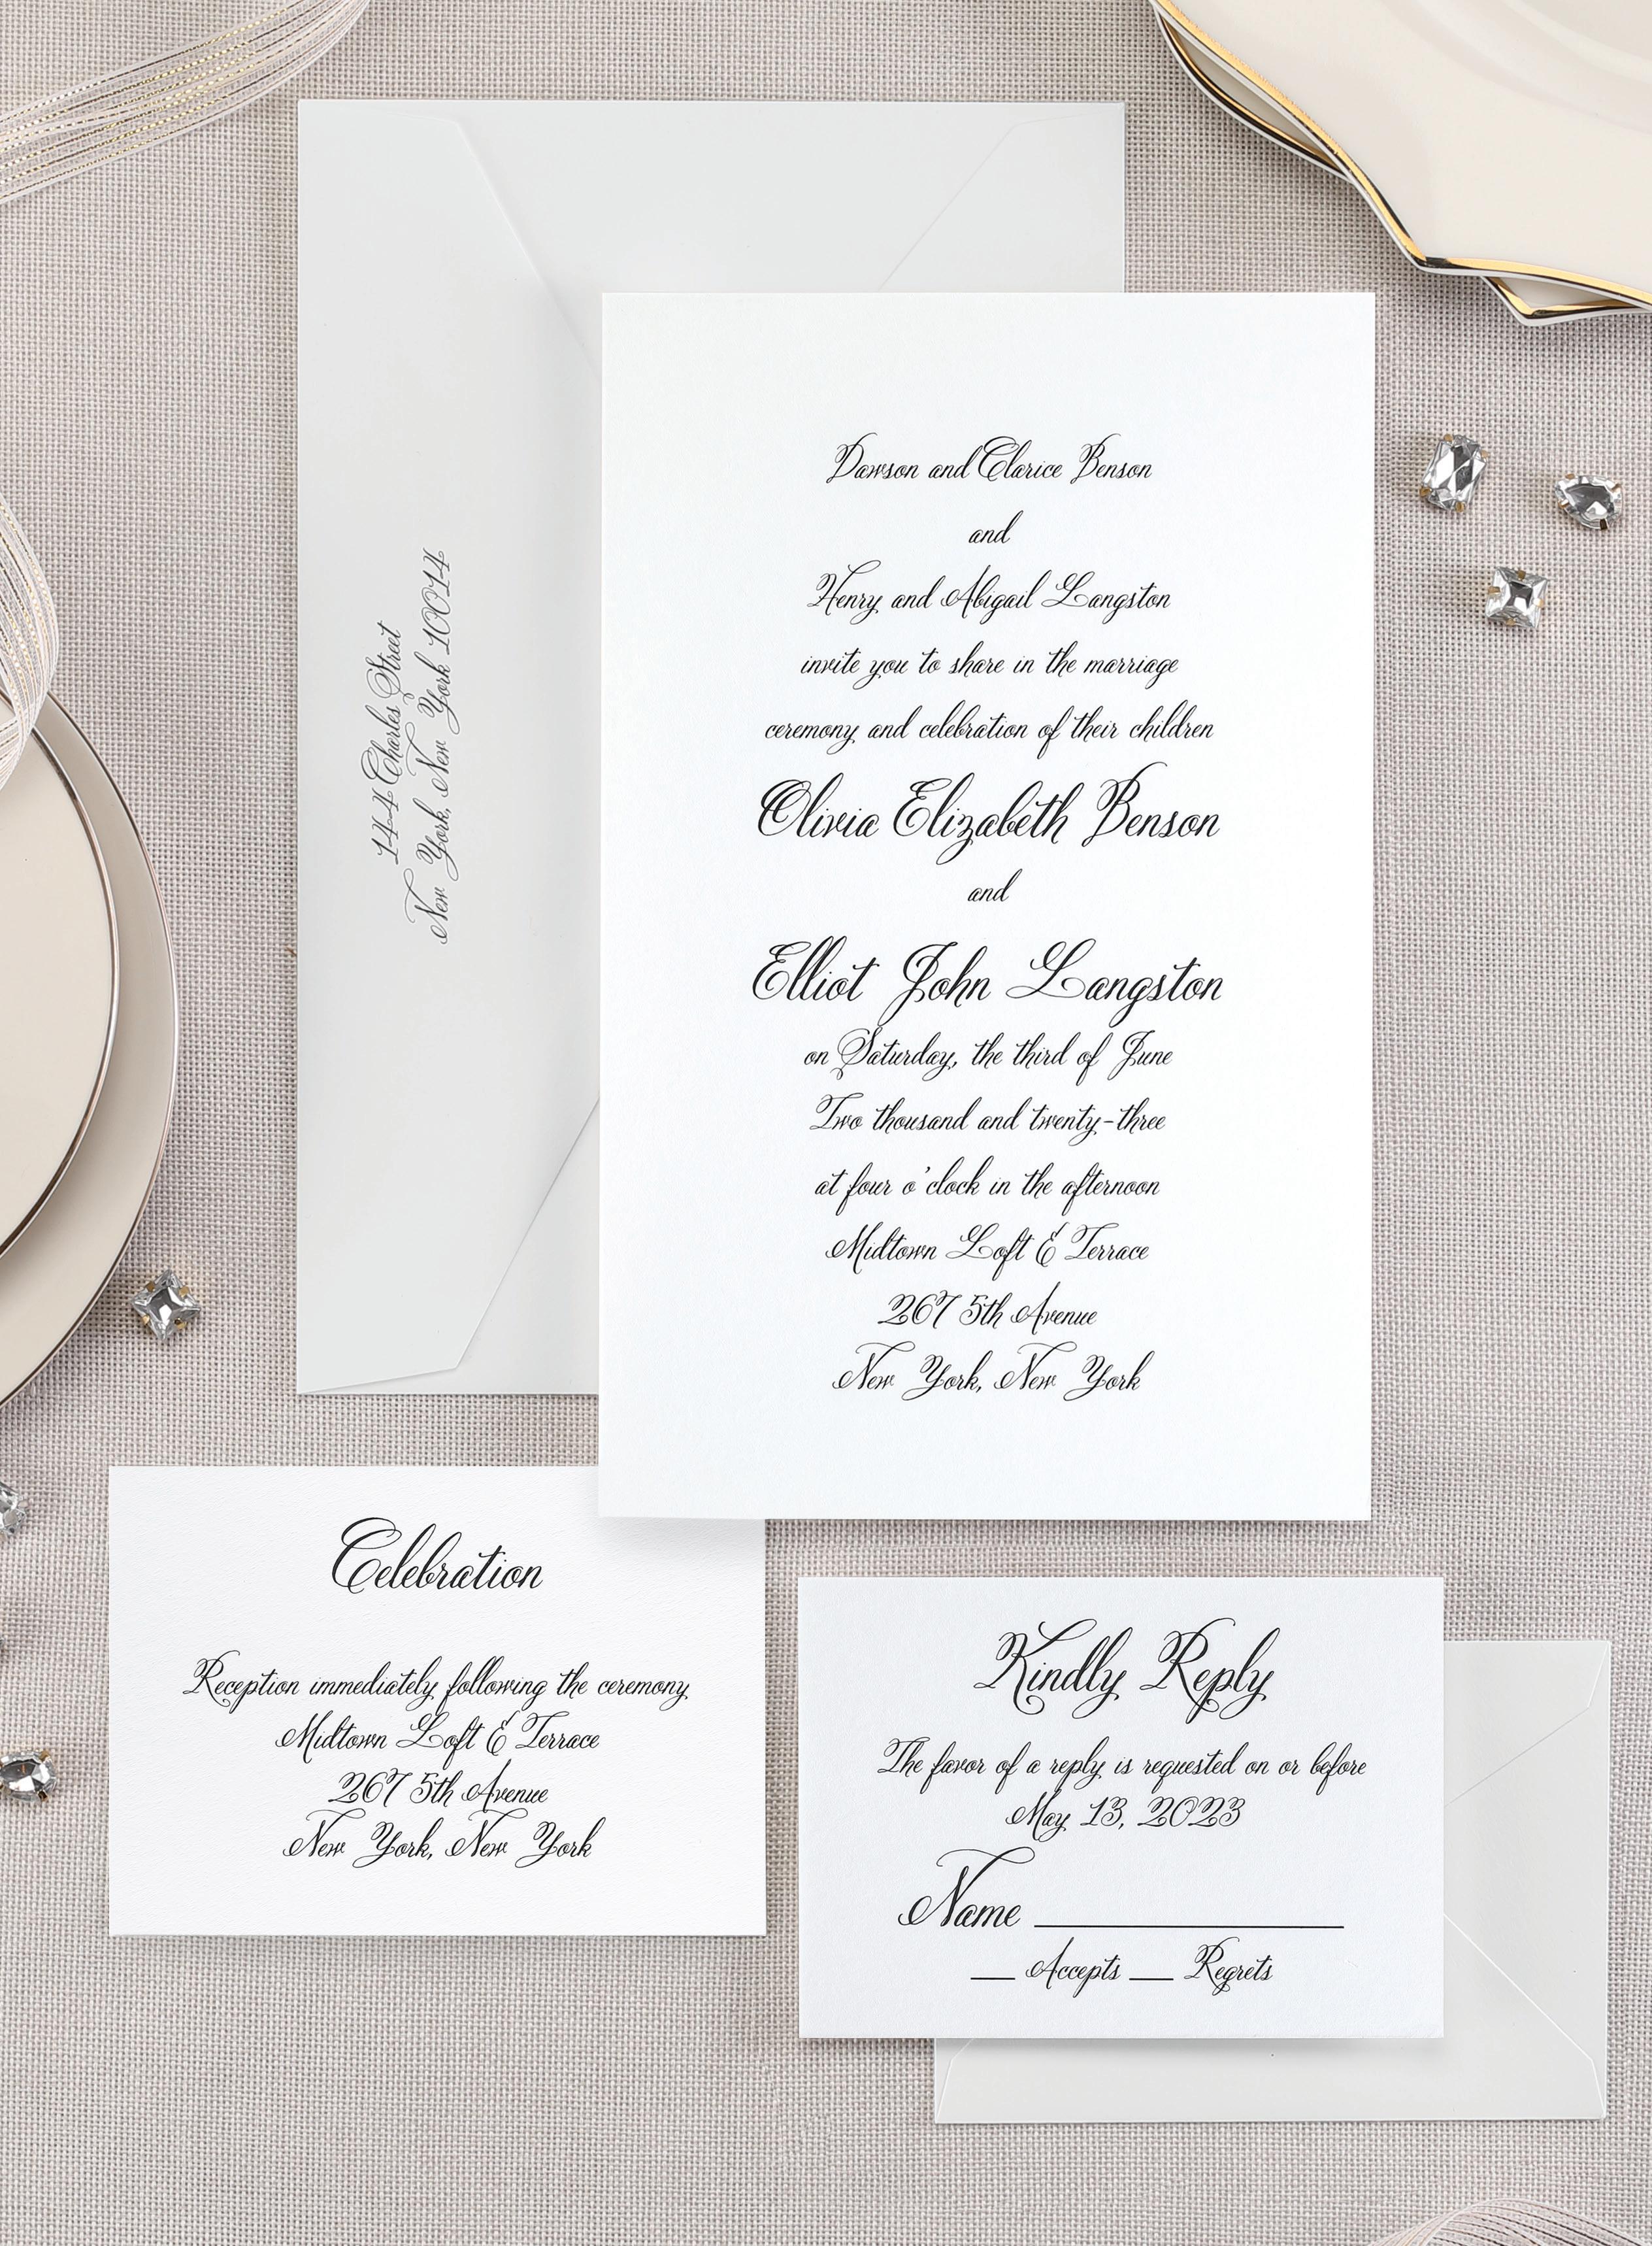 144 Charles Street
New York, New York 10014
Dawson and Clarice Benson
and
Henry and Abigail Langston
invite you to share in the marriage
ceremony and celebration of their children
Olivia Elizabeth Benson
and
Elliot John Langston
on Saturday, the third of June
Two thousand and twenty-three
at four o'clock in the afternoon
Midtown Loft & Terrace
267 5th Avenue
New York, New York
Celebration
Reception immediately following the ceremony
Midtown Loft & Terrace
267 5th Avenue
New York, New York
Kindly Reply
The favor of a reply is requested on or before
May 13, 2023
Name
Accepts Regrets